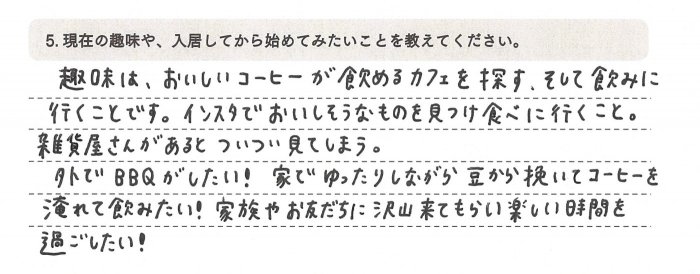 5. 現在の趣味や、入居してから始めてみたいことを教えてください。
趣味は、おいしいコーヒーが飲めるカフェを探す、そして飲みに
行くことです。インスタでおいしそうなものを見つけ食べに行くこと。
雑貨屋さんがあるとついつい見てしまう。
外でBBQがしたい！家でゆったりしながら豆から挽いてコーヒーを
淹れて飲みたい！家族やお友だちに沢山来てもらい楽しい時間を
過ごしたい！